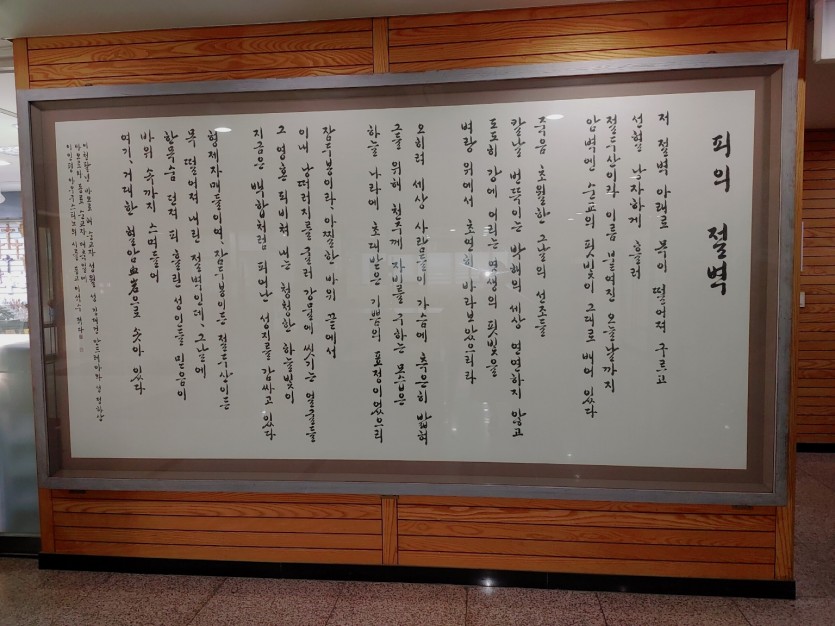 피의 절벽
저 절벽 아래로 목이 떨어져 구르고
선혈은 낭자하게 흘러
절두산이라 이름 붙여진 오늘날까지
암벽엔 순교의 핏빛이 그대로 배어 있다
죽음 초월한 그날의 선조들
칼날 번뜩이는 박해의 세상 연연하지 않고
도도히 강에 어리는 영생의 핏빛을
벼랑 위에서 초연히 바라보았으리라
오히려 세상 사람들이 가슴에 측은히 밟혀
그들 위해 천주께 자비를 구하는 목숨은
하늘 나라에 초대받은 기쁨의 표정이었으리
잠두봉이라, 아찔한 바위 끝에서
이내 낭떠러지를 굴러 강물에 씻기는 얼굴들
그 영혼 되비쳐 내는 청청한 하늘빛이
지금은 백합처럼 피어난 성지를 감싸고 있다
형제자매들이여, 잠두봉이든 절두산이든
목 떨어져 내린 절벽인데, 그날에
한목숨 던져 피 흘린 선인들 믿음이
바위 속까지 스며들어
여기, 거대한 혈암血岩으로 솟아 있다